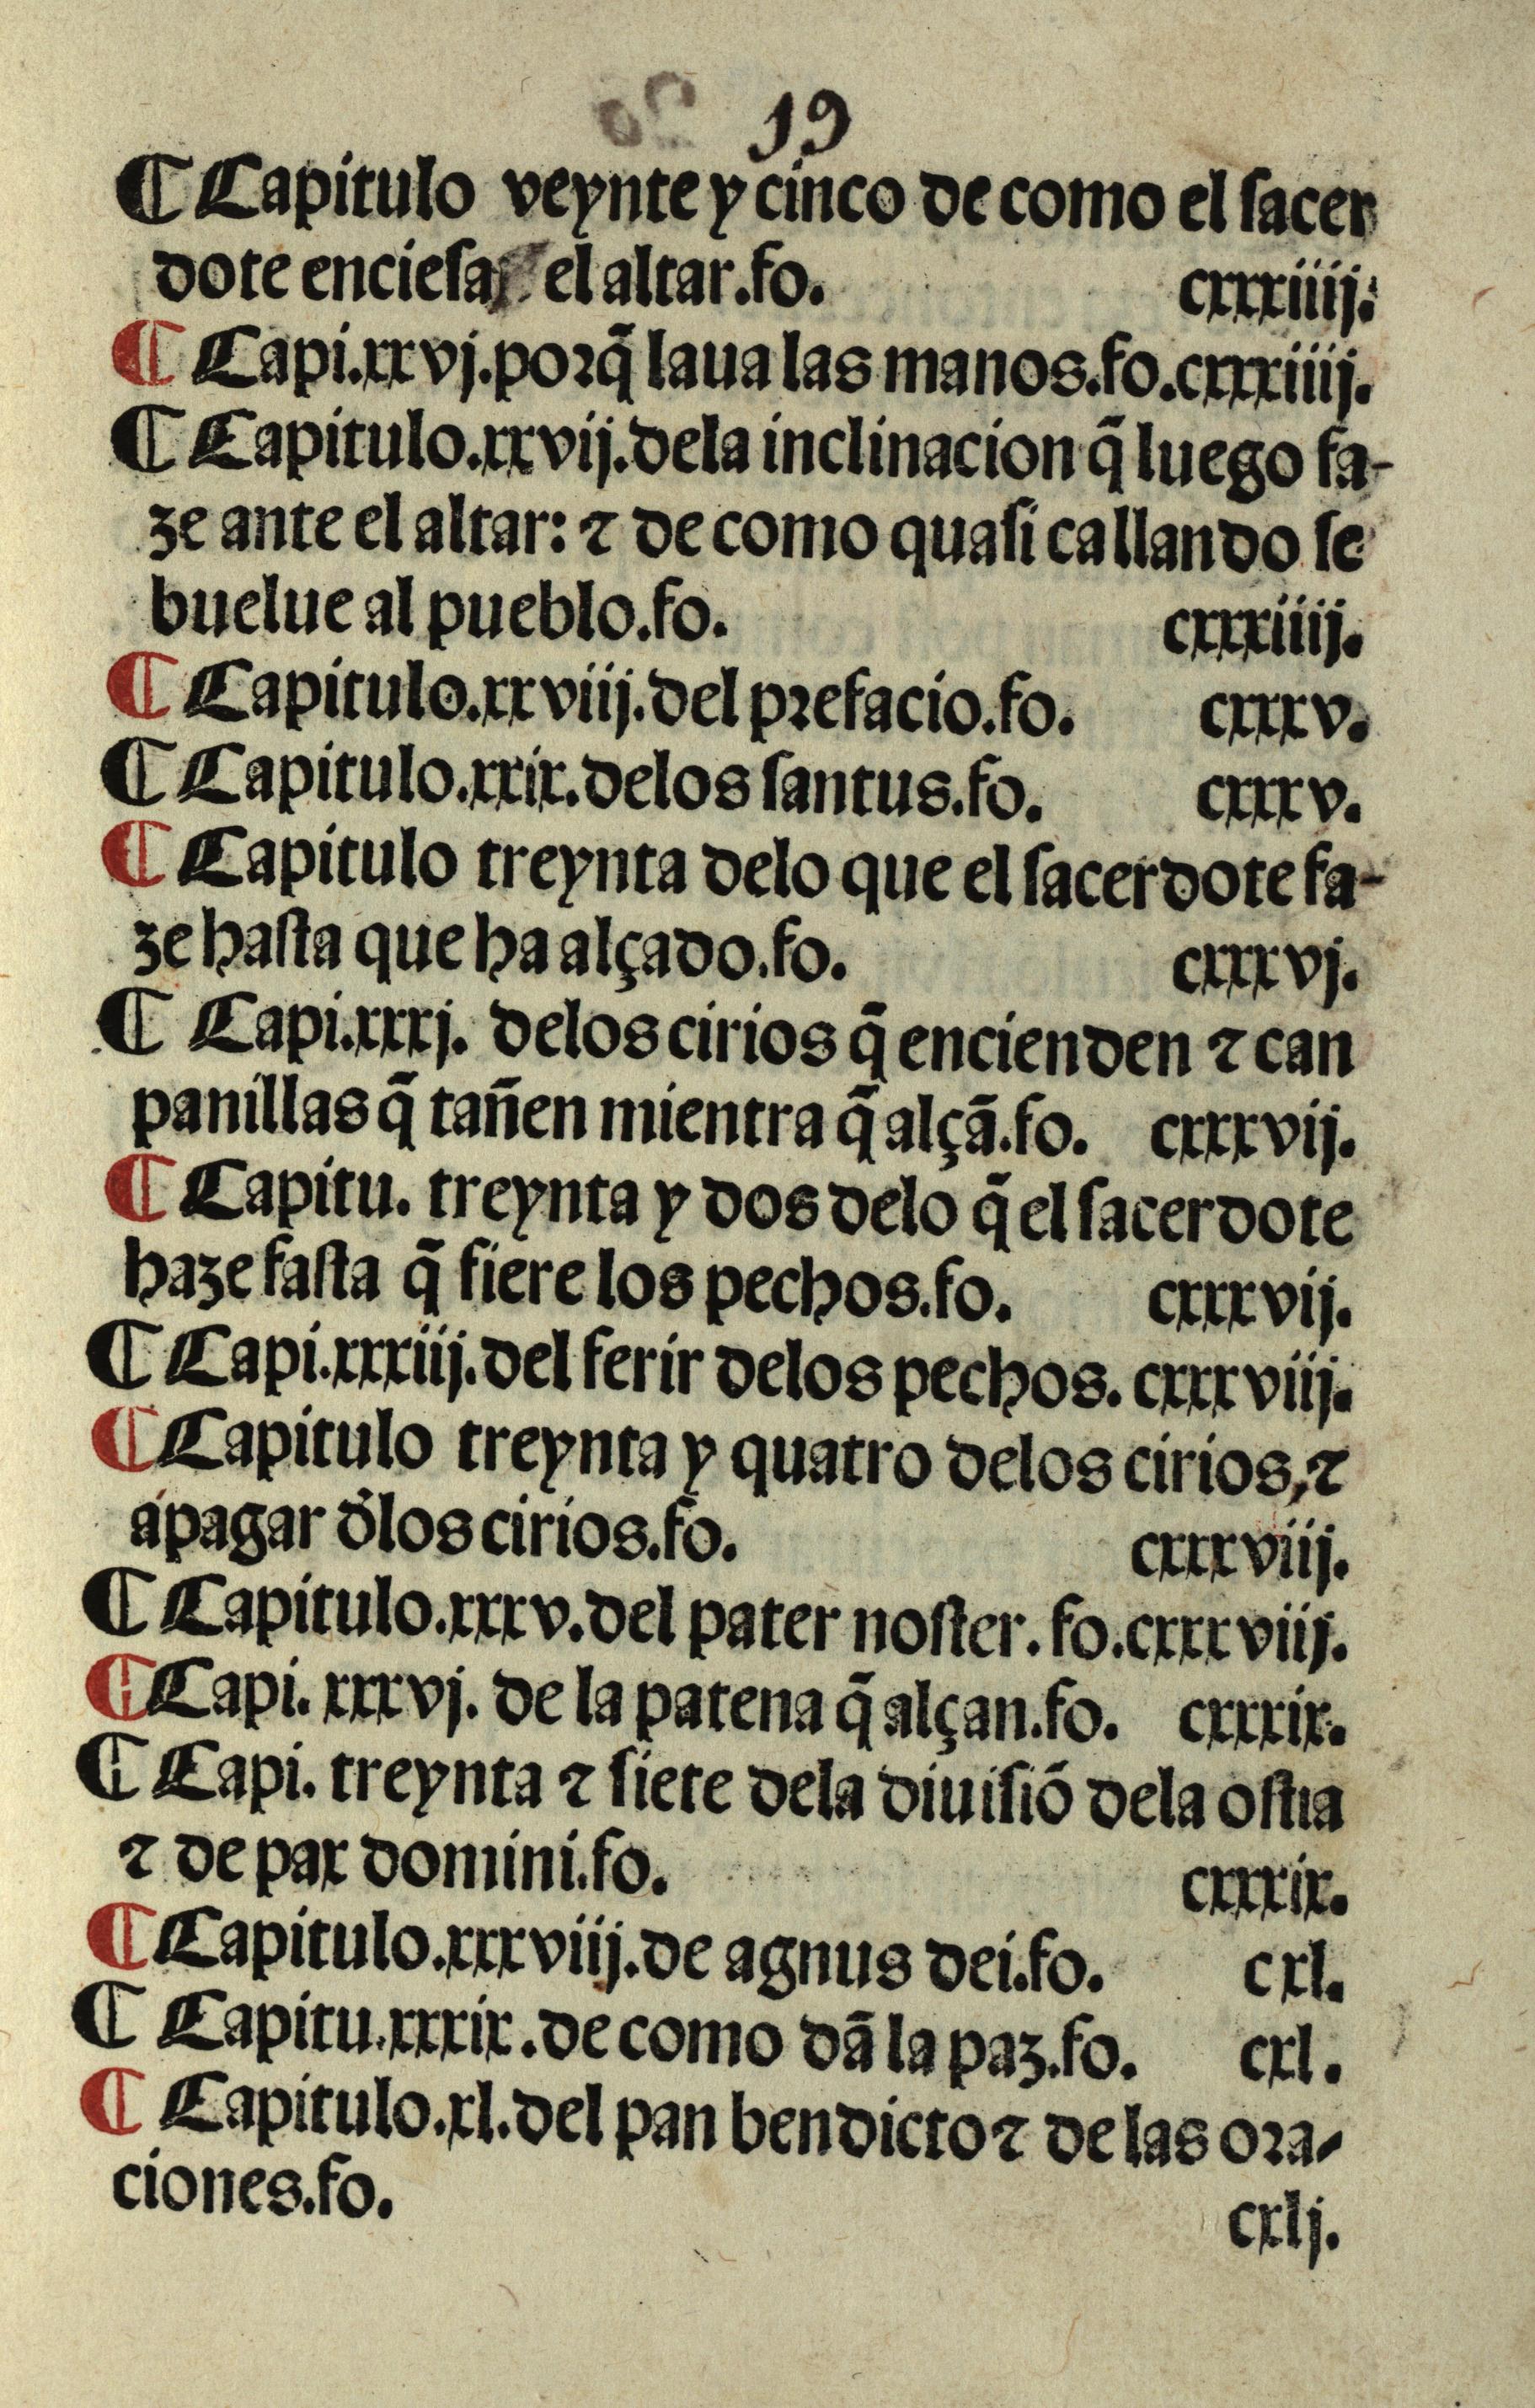 19
¶ Capitulo veynte y cinco de como el sacer
dote enciesa el altar.fo. cxxxiiij.
¶ Capi.xxvj.porq̃ laua las manos.fo.cxxxiiij.
¶ Capitulo.xxvij.dela inclinacion q̃ luego fa-
ze ante el altar: ⁊ de como quasi callando se
buelue al pueblo.fo. cxxxiiij.
¶ Capitulo.xxviij.del prefacio.fo. cxxxv.
¶ Capitulo.xxix.delos santus.fo. cxxxv.
¶ Capitulo treynta delo que el sacerdote fa-
ze hasta que ha alçado.fo. cxxxvj.
¶ Capi.xxxj. delos cirios q̃ encienden ⁊ can
panillas q̃ tañen mientra q̃ alçã.fo. cxxxvij.
¶ Capitu. treynta y dos delo q̃ el sacerdote
haze fasta q̃ fiere los pechos.fo. cxxxvij.
¶ Capi.xxxiij.del ferir delos pechos. cxxxviij.
¶ Capitulo treynta y quatro delos cirios,⁊
apagar d̃los cirios.fo. cxxxviij.
¶ Capitulo.xxxv.del pater noster. fo.cxxxviij.
¶ Capi. xxxvj. de la patena q̃ alçan.fo. cxxxix.
¶ Capi. treynta ⁊ siete dela diuisiõ dela ostia
⁊ de pax domini.fo. cxxxix.
¶ Capitulo.xxxviij.de agnus dei.fo. cxl.
¶ Capitu.xxxix.de como dã la paz.fo. cxl.
¶ Capitulo.xl.del pan bendicto ⁊ de las ora-
ciones.fo. cxlj.